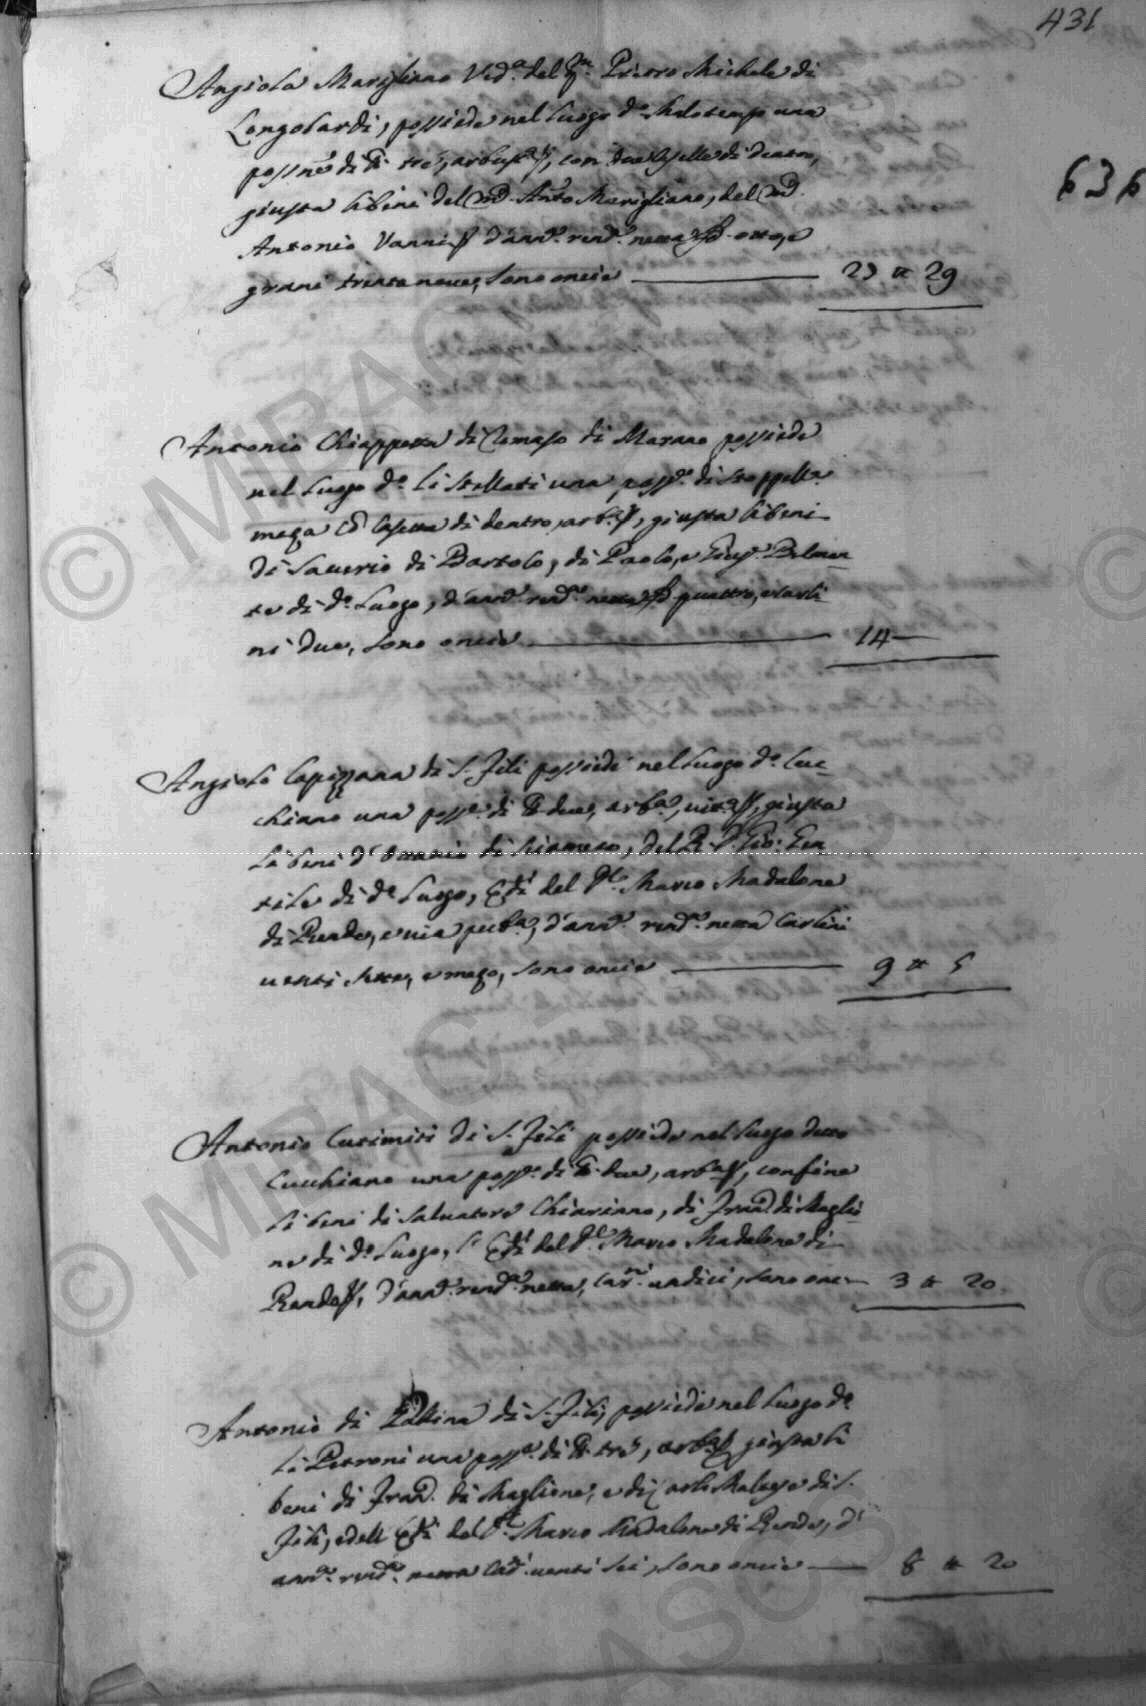 431
636
Angiola Marigliano Ved.ª del qm. Pietro Michele di
Longobardi, possiede nel luogo d.º una
poss.ne di tt.ª tre, arbust.ª, con due caselle di dentro,
giusta li beni del Mag. Ant.º Marigliano, del Mag.
Antonio Vannis, d'ann.ª rend.ª netta di otto, e
grani trenta nove, sono oncie 29 29
Antonio Chiappetta di Tomaso di Marano possiede
nel luogo d.º li Stellati una poss.e di stoppell.ª
meza cõ casetta di dentro, arb.ta, giusta li beni
di Saverio di Bartolo, di Paolo, e Gius.e Belmon-
te di d.º luogo, d'ann.ª rend.ª netta quattro, e carli-
ni due, sono oncie 14
Angiolo Capizzana di S. Fili possiede nel luogo d.º Cuc-
chiano una poss.e di tt.ª due, arb.ª, vit.ª, giusta
li beni d' di , del R. D. Gio: Gen-
tile di d.º luogo, Eredi del q.m Marco Madalone
di Rende, e via pub.ª, d'ann.ª rend.ª netta carlini
venti sette, e mezo, sono oncie 9 5
Antonio di S. Fili possiede nel luogo detto
Cucchiano una poss.e di tt.ª due, arb.ta, confine
li beni di Salvatore Chiariano, di Fran.º di Maglio-
ne di d.º luogo, l'Eredi del q.m Marco Madalone di
Rende, d'ann.ª rend.ª netta, car.ni undici, sono onc. 3 20
Antonio di di S. Fili, possiede nel luogo d.º
li Petroni una poss.e di tt.ª tre, arb.ta giusta li
beni di Fran.º di Maglione, e di di S.
Fili, e dell'Eredi del q.m Marco Madalone di Rende, d'
ann.ª rend.ª netta car.ni venti sei, sono oncie 8 20
© MIBAC - ASCS